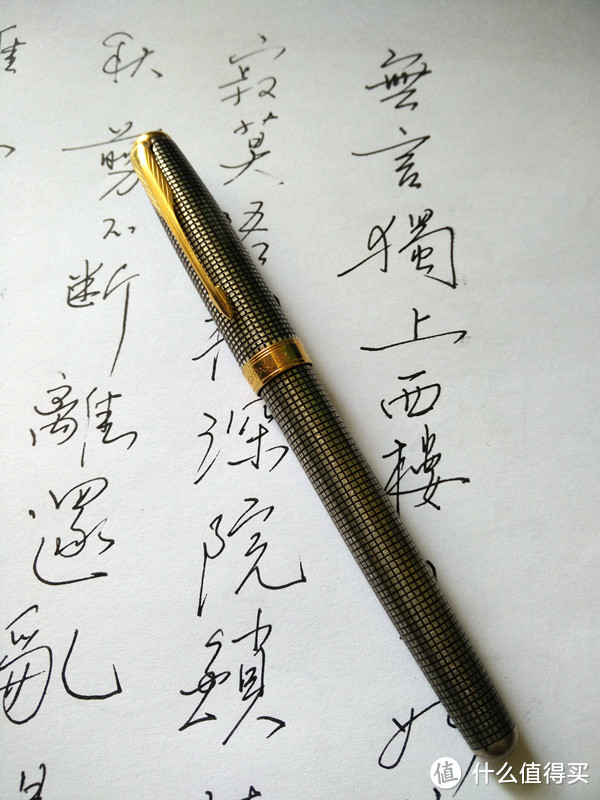 無言獨上西樓
寂莫深院鎖
秋剪不斷離還亂
值 什么值得买